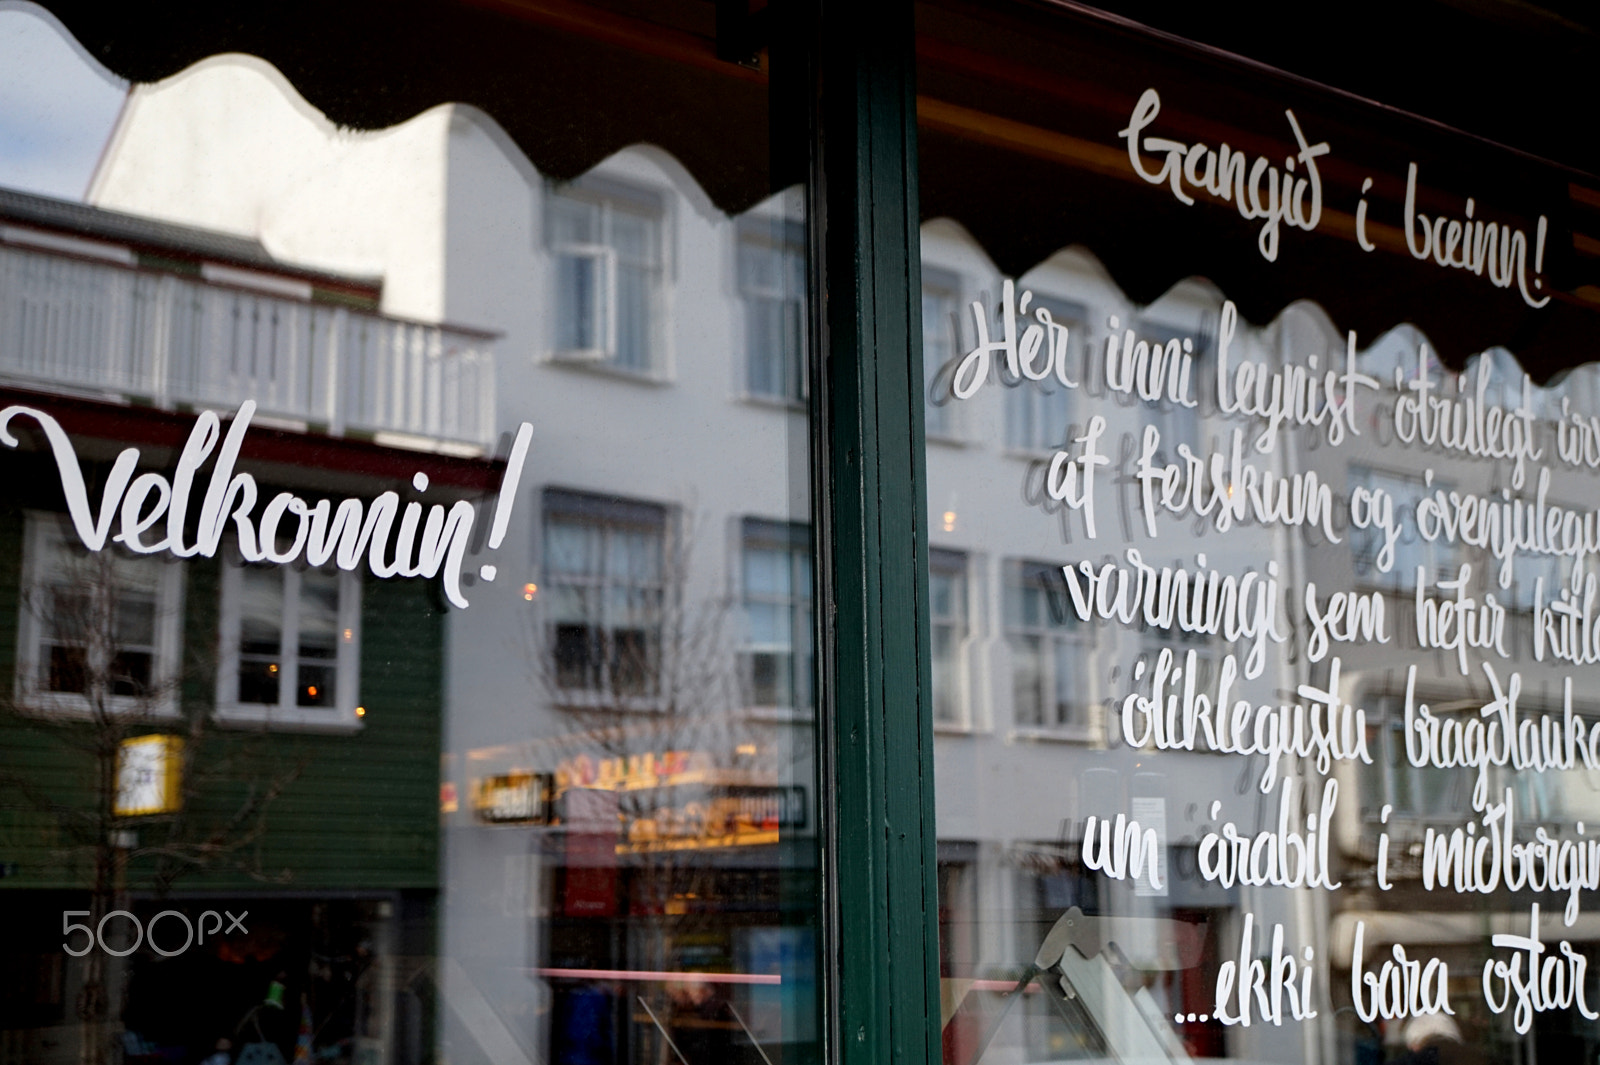 Velkomin!
Gangið í bæinn!
Hér inni leynist ótrúlegt úrv
af ferskum og óvenjulegu
varningi sem hefur kitla
ólíklegustu bragðlauka
um árabil í miðborgin
...ekki bara ostar
500px